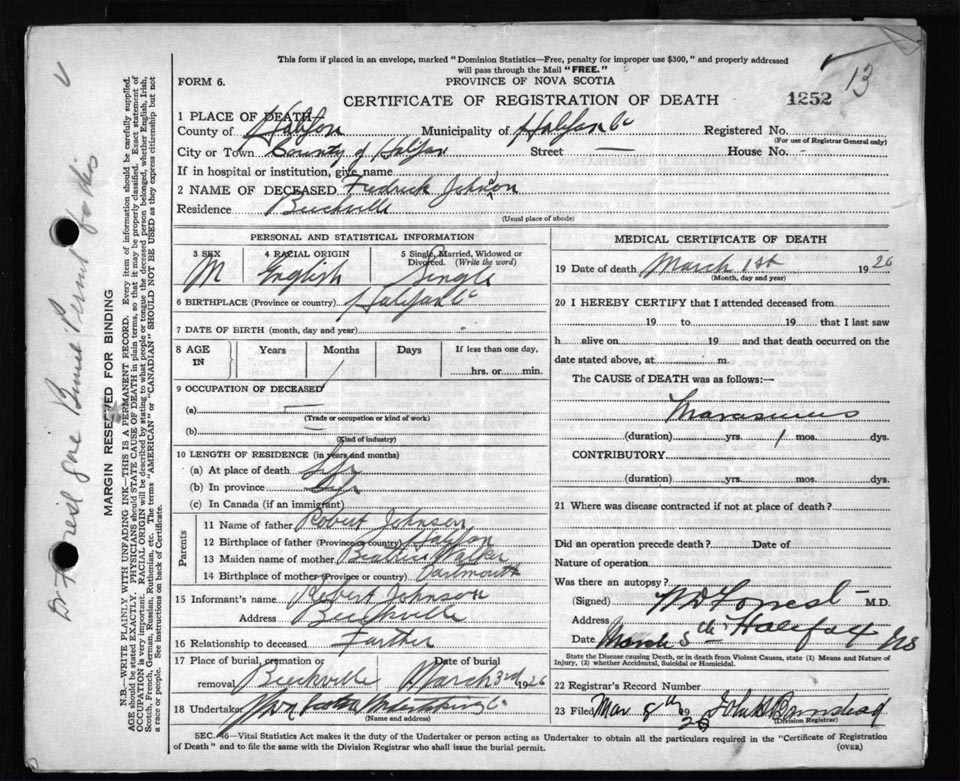 This form if placed in an envelope, marked "Dominion Statistics—Free, penalty for improper use $300," and properly addressed
will pass through the Mail "FREE."
13
FORM 6.
PROVINCE OF NOVA SCOTIA
CERTIFICATE OF REGISTRATION OF DEATH
1252
1 PLACE OF DEATH
County of Halifax Municipality of Halifax Co Registered No.
(For use of Registrar General only)
City or Town County of Halifax Street — House No. -
If in hospital or institution, give name
2 NAME OF DECEASED Fredrick Johnson
Residence Beechville
(Usual place of abode)
PERSONAL AND STATISTICAL INFORMATION
3 SEX 4 RACIAL ORIGIN 5 Single, Married, Widowed or
Divorced. (Write the word)
M English Single
6 BIRTHPLACE (Province or country) Halifax Co
7 DATE OF BIRTH (month, day and year)
8 AGE IN Years Months Days If less than one day,
1 hrs. or min.
9 OCCUPATION OF DECEASED
(a) —
(Trade or occupation or kind of work)
(b) —
(Kind of industry)
10 LENGTH OF RESIDENCE (in years and months)
(a) At place of death Life
(b) In province
(c) In Canada (if an immigrant)
Parents
11 Name of father Robert Johnson
12 Birthplace of father (Province or country) Halifax
13 Maiden name of mother Beatrice Walker
14 Birthplace of mother (Province or country) Dartmouth
15 Informant's name Robert Johnson
Address Beechville
16 Relationship to deceased Farther
17 Place of burial, cremation or Date of burial
removal Beechville March 3rd 1926
18 Undertaker Undertaking Co
(Name and address)
MEDICAL CERTIFICATE OF DEATH
19 Date of death March 1st 1926
(Month, day and year)
20 I HEREBY CERTIFY that I attended deceased from
19 to 19 that I last saw
h alive on 19 and that death occurred on the
date stated above, at m.
The CAUSE of DEATH was as follows:—
Marasmus
(duration) yrs. 1 mos. dys.
CONTRIBUTORY
(duration) yrs. mos. dys.
21 Where was disease contracted if not at place of death?
Did an operation precede death? Date of
Nature of operation
Was there an autopsy?
(Signed) W D Forrest M.D.
Address
Date March 5th Halifax NS
State the Disease causing Death, or in death from Violent Causes, state (1) Means and Nature of
Injury, (2) whether Accidental, Suicidal or Homicidal.
22 Registrar's Record Number
23 Filed Mar 8th 1926 John H Barnstead
(Division Registrar)
SEC. 46—Vital Statistics Act makes it the duty of the Undertaker or person acting as Undertaker to obtain all the particulars required in the "Certificate of Registration
of Death" and to file the same with the Division Registrar who shall issue the burial permit.
(OVER)
Dr Forrest gave Burial Permit for this
MARGIN RESERVED FOR BINDING
N.B.—WRITE PLAINLY WITH UNFADING INK—THIS IS A PERMANENT RECORD. Every item of information should be carefully supplied.
AGE should be stated EXACTLY. PHYSICIANS should STATE CAUSE OF DEATH in plain terms, so that it may be properly classified. Exact statement of
OCCUPATION is very important. RACIAL ORIGIN will be described by stating to what people or tongue the deceased person belonged, whether English, Irish,
Scotch, French, German, Russian, Ruthenian, etc. The terms "AMERICAN" or "CANADIAN" SHOULD NOT BE USED as they express citizenship but not
a race or people. See instructions on back of Certificate.